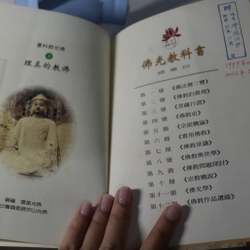 佛光教科書
佛教的真理
佛光教科書
總書目
第一冊《佛法僧三寶》
第二冊《佛教的真理》
第三冊《菩薩行證》
第四冊《佛教史》
第五冊《宗派概論》
第六冊《實用佛教》
第七冊《佛教常識》
第八冊《佛教與世學》
第九冊《佛教問題探討》
第十冊《宗教概說》
第十一《佛光學》
第十二《佛教作品選錄》
贈